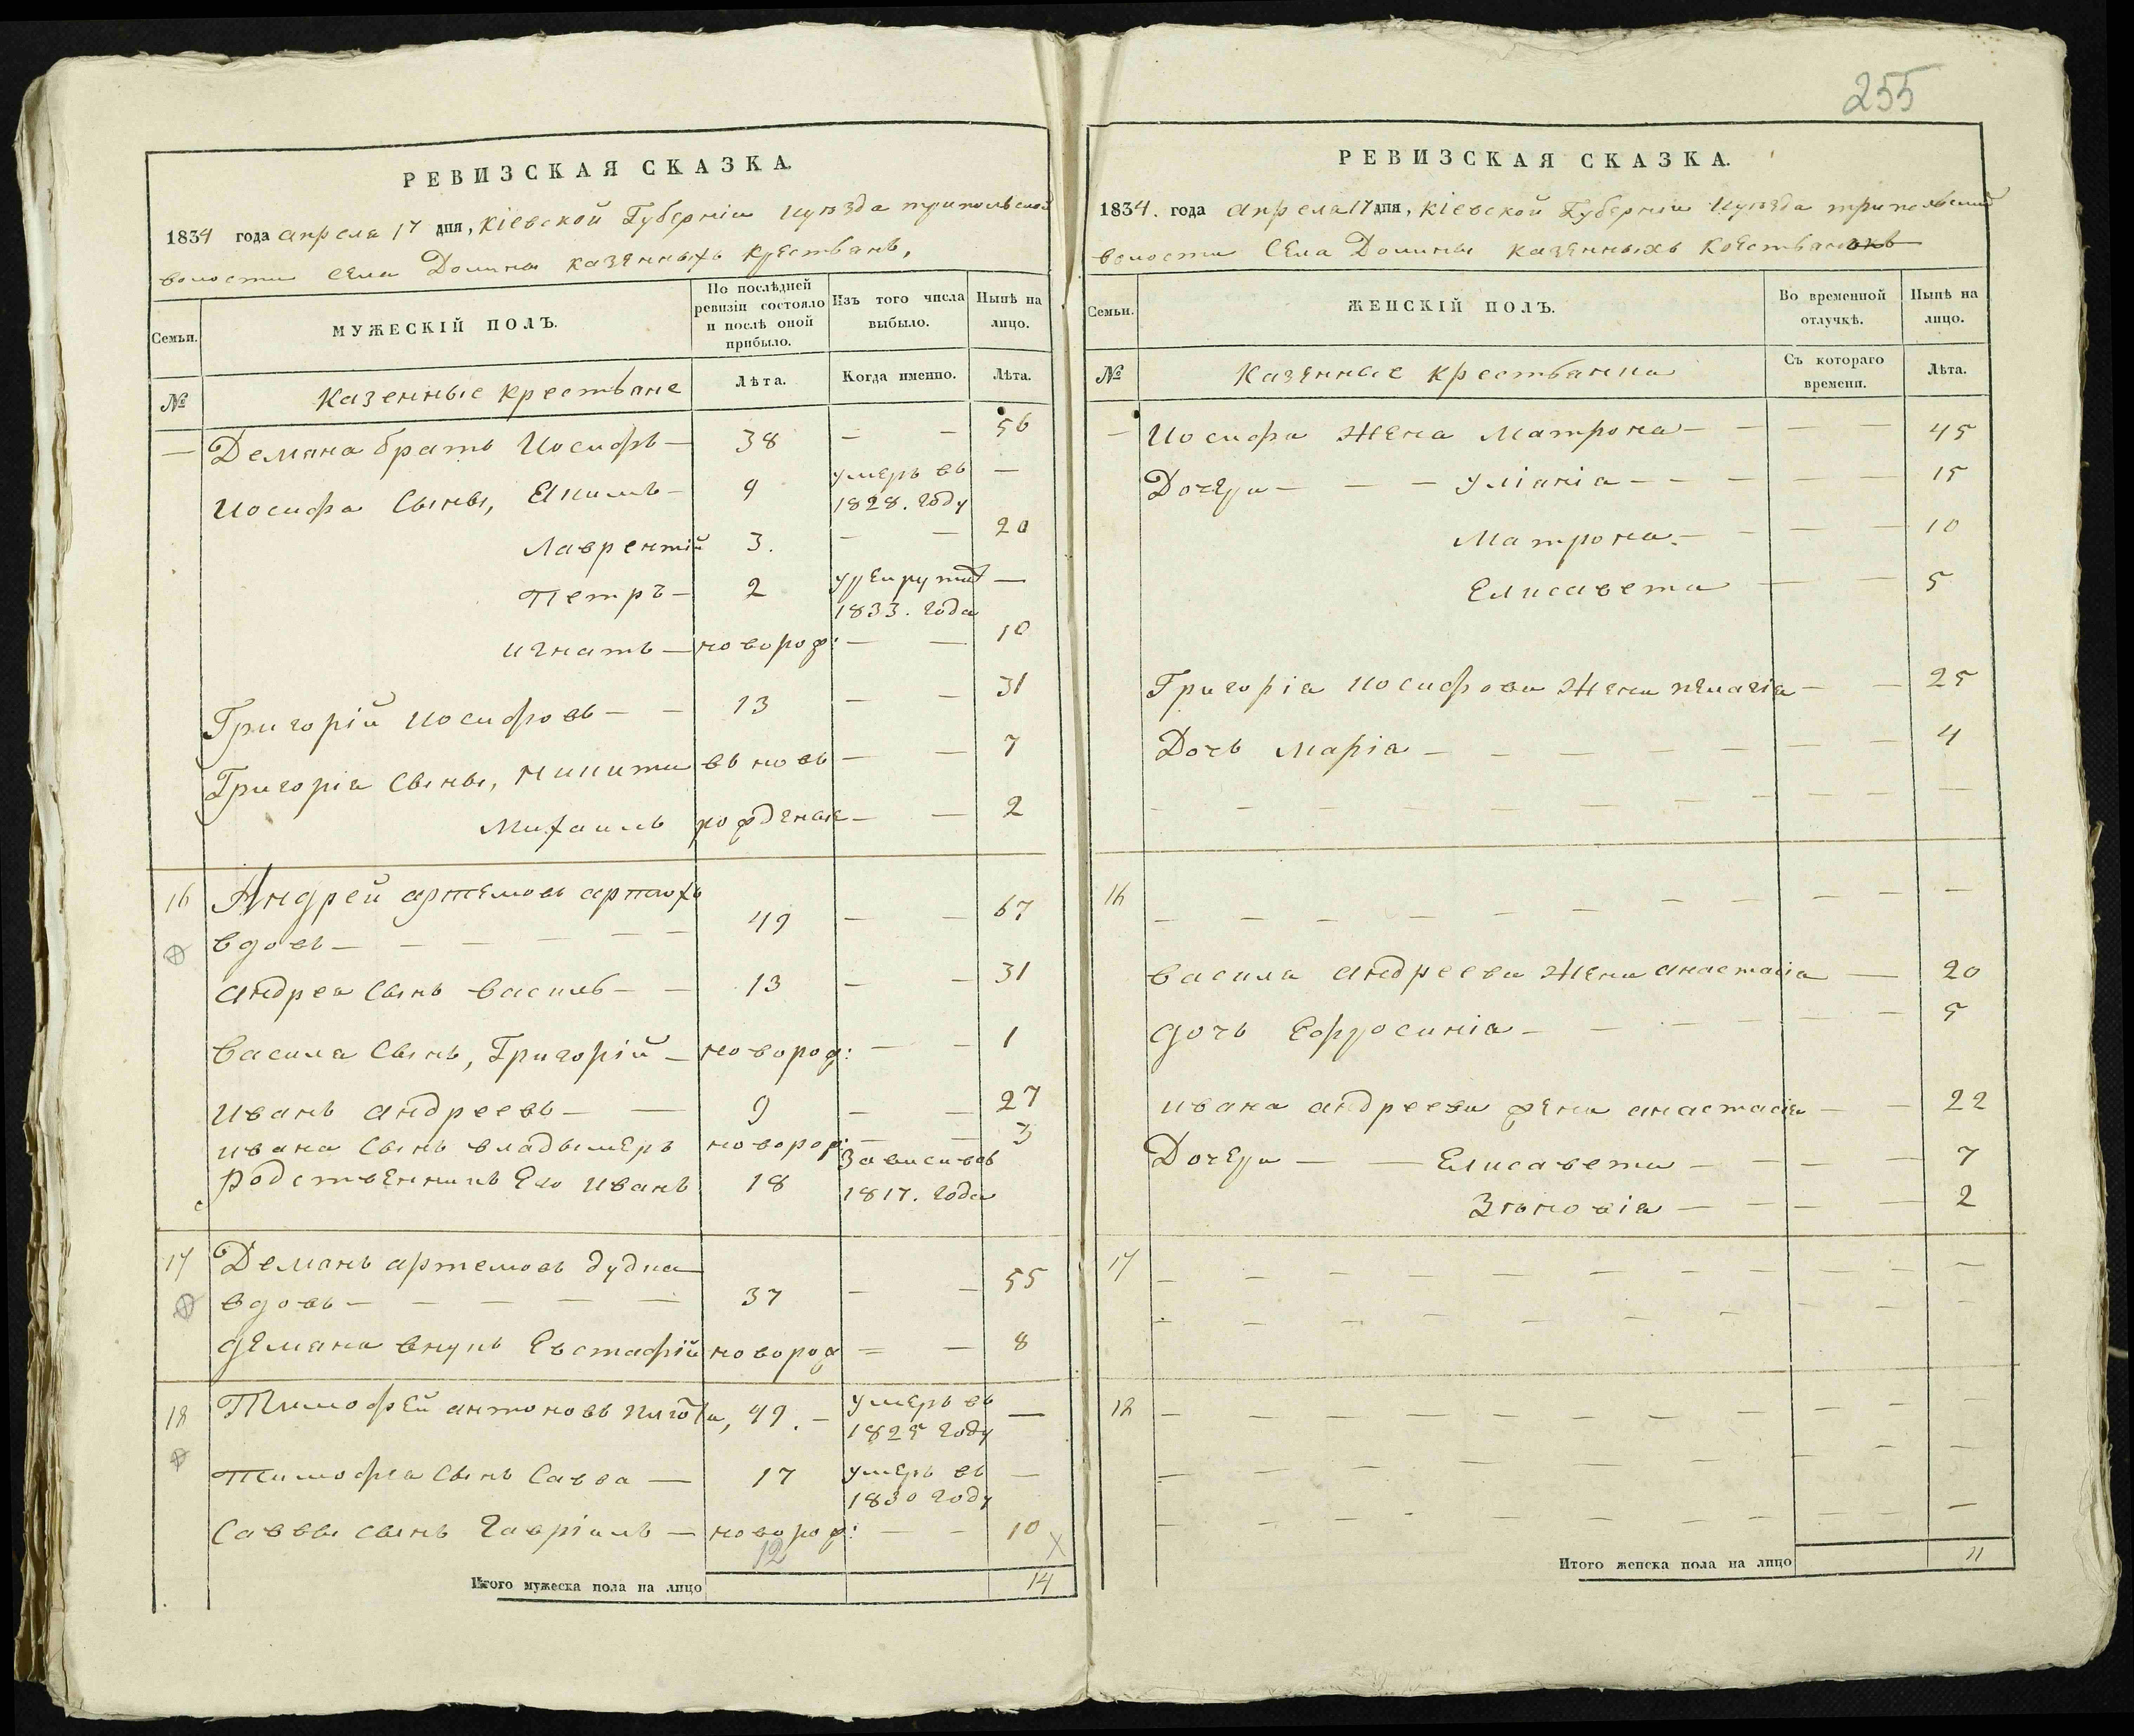 РЕВИЗСКАЯ СКАЗКА.
1834 года апреля 17 дня, Кіевской Губерніи и уезда трипольской
волости Села Долины казенныхъ крестьянъ,
Семьи.
МУЖЕСКІЙ ПОЛЪ.
По послѣдней ревизіи состояло и послѣ оной прибыло.
Изъ того числа выбыло.
Нынѣ на лицо.
№
Казенные крестьяне
Лѣта.
Когда именно.
Лѣта.
— Демяна братъ Иосифъ — 38 — — 56
Иосифа Сыны, Екимъ — 9 умеръ въ 1828. году —
Лаврентій 3. — — 20
Петръ — 2 1833. года —
игнатъ — новорож: — — 10
Григорій Иосифовъ — — 13 — — 31
Григорія Сыны, Никита вновь — — 7
Михаилъ рожденые — — 2
16 Андрей артемовъ
вдовъ — — — — — — 49 — — 67
андрея Сынъ василь — — 13 — — 31
василя Сынъ, Григорій — новорож: — — 1
иванъ андреевъ — — 9 — — 27
ивана Сынъ владымеръ новорож: — — 3
родственникъ Его иванъ 18 1817. года
17 Демянъ артемовъ дудка
вдовъ — — — — — 37 — — 55
демяна внукъ Евстафій новорож = — 8
18 Тимофей антоновъ 49. — умеръ въ 1825 году —
тимофея Сынъ Савва — 17 умеръ въ 1830 году —
Саввы сынъ Гавріилъ — новорож: — — 10
12
Итого мужеска пола на лицо 14
255
РЕВИЗСКАЯ СКАЗКА.
1834. года апреля 17 дня, Кіевской Губерніи и уезда трипольской
волости Села Долины казенныхъ крестьянокъ
Семьи.
ЖЕНСКІЙ ПОЛЪ.
Во временной отлучкѣ.
Нынѣ на лицо.
№
Казенные крестьянки
Съ котораго времени.
Лѣта.
— Иосифа Жена Матрона — — — — 45
Дочери — — — Уліанія — — — — — 15
Матрона. — — — — 10
Елисавета — — 5
Григорія иосифова Жена пелагія — — 25
Дочь Марія — — — — — — — 4
16
василя андреева Жена анастасія — 20
дочь Ефросинія — — — — — — 5
ивана андреева жена анастасія — — 22
Дочери — — Елисавета — — — — 7
Зѣновія — — — — 2
17
18
Итого женска пола на лицо 11